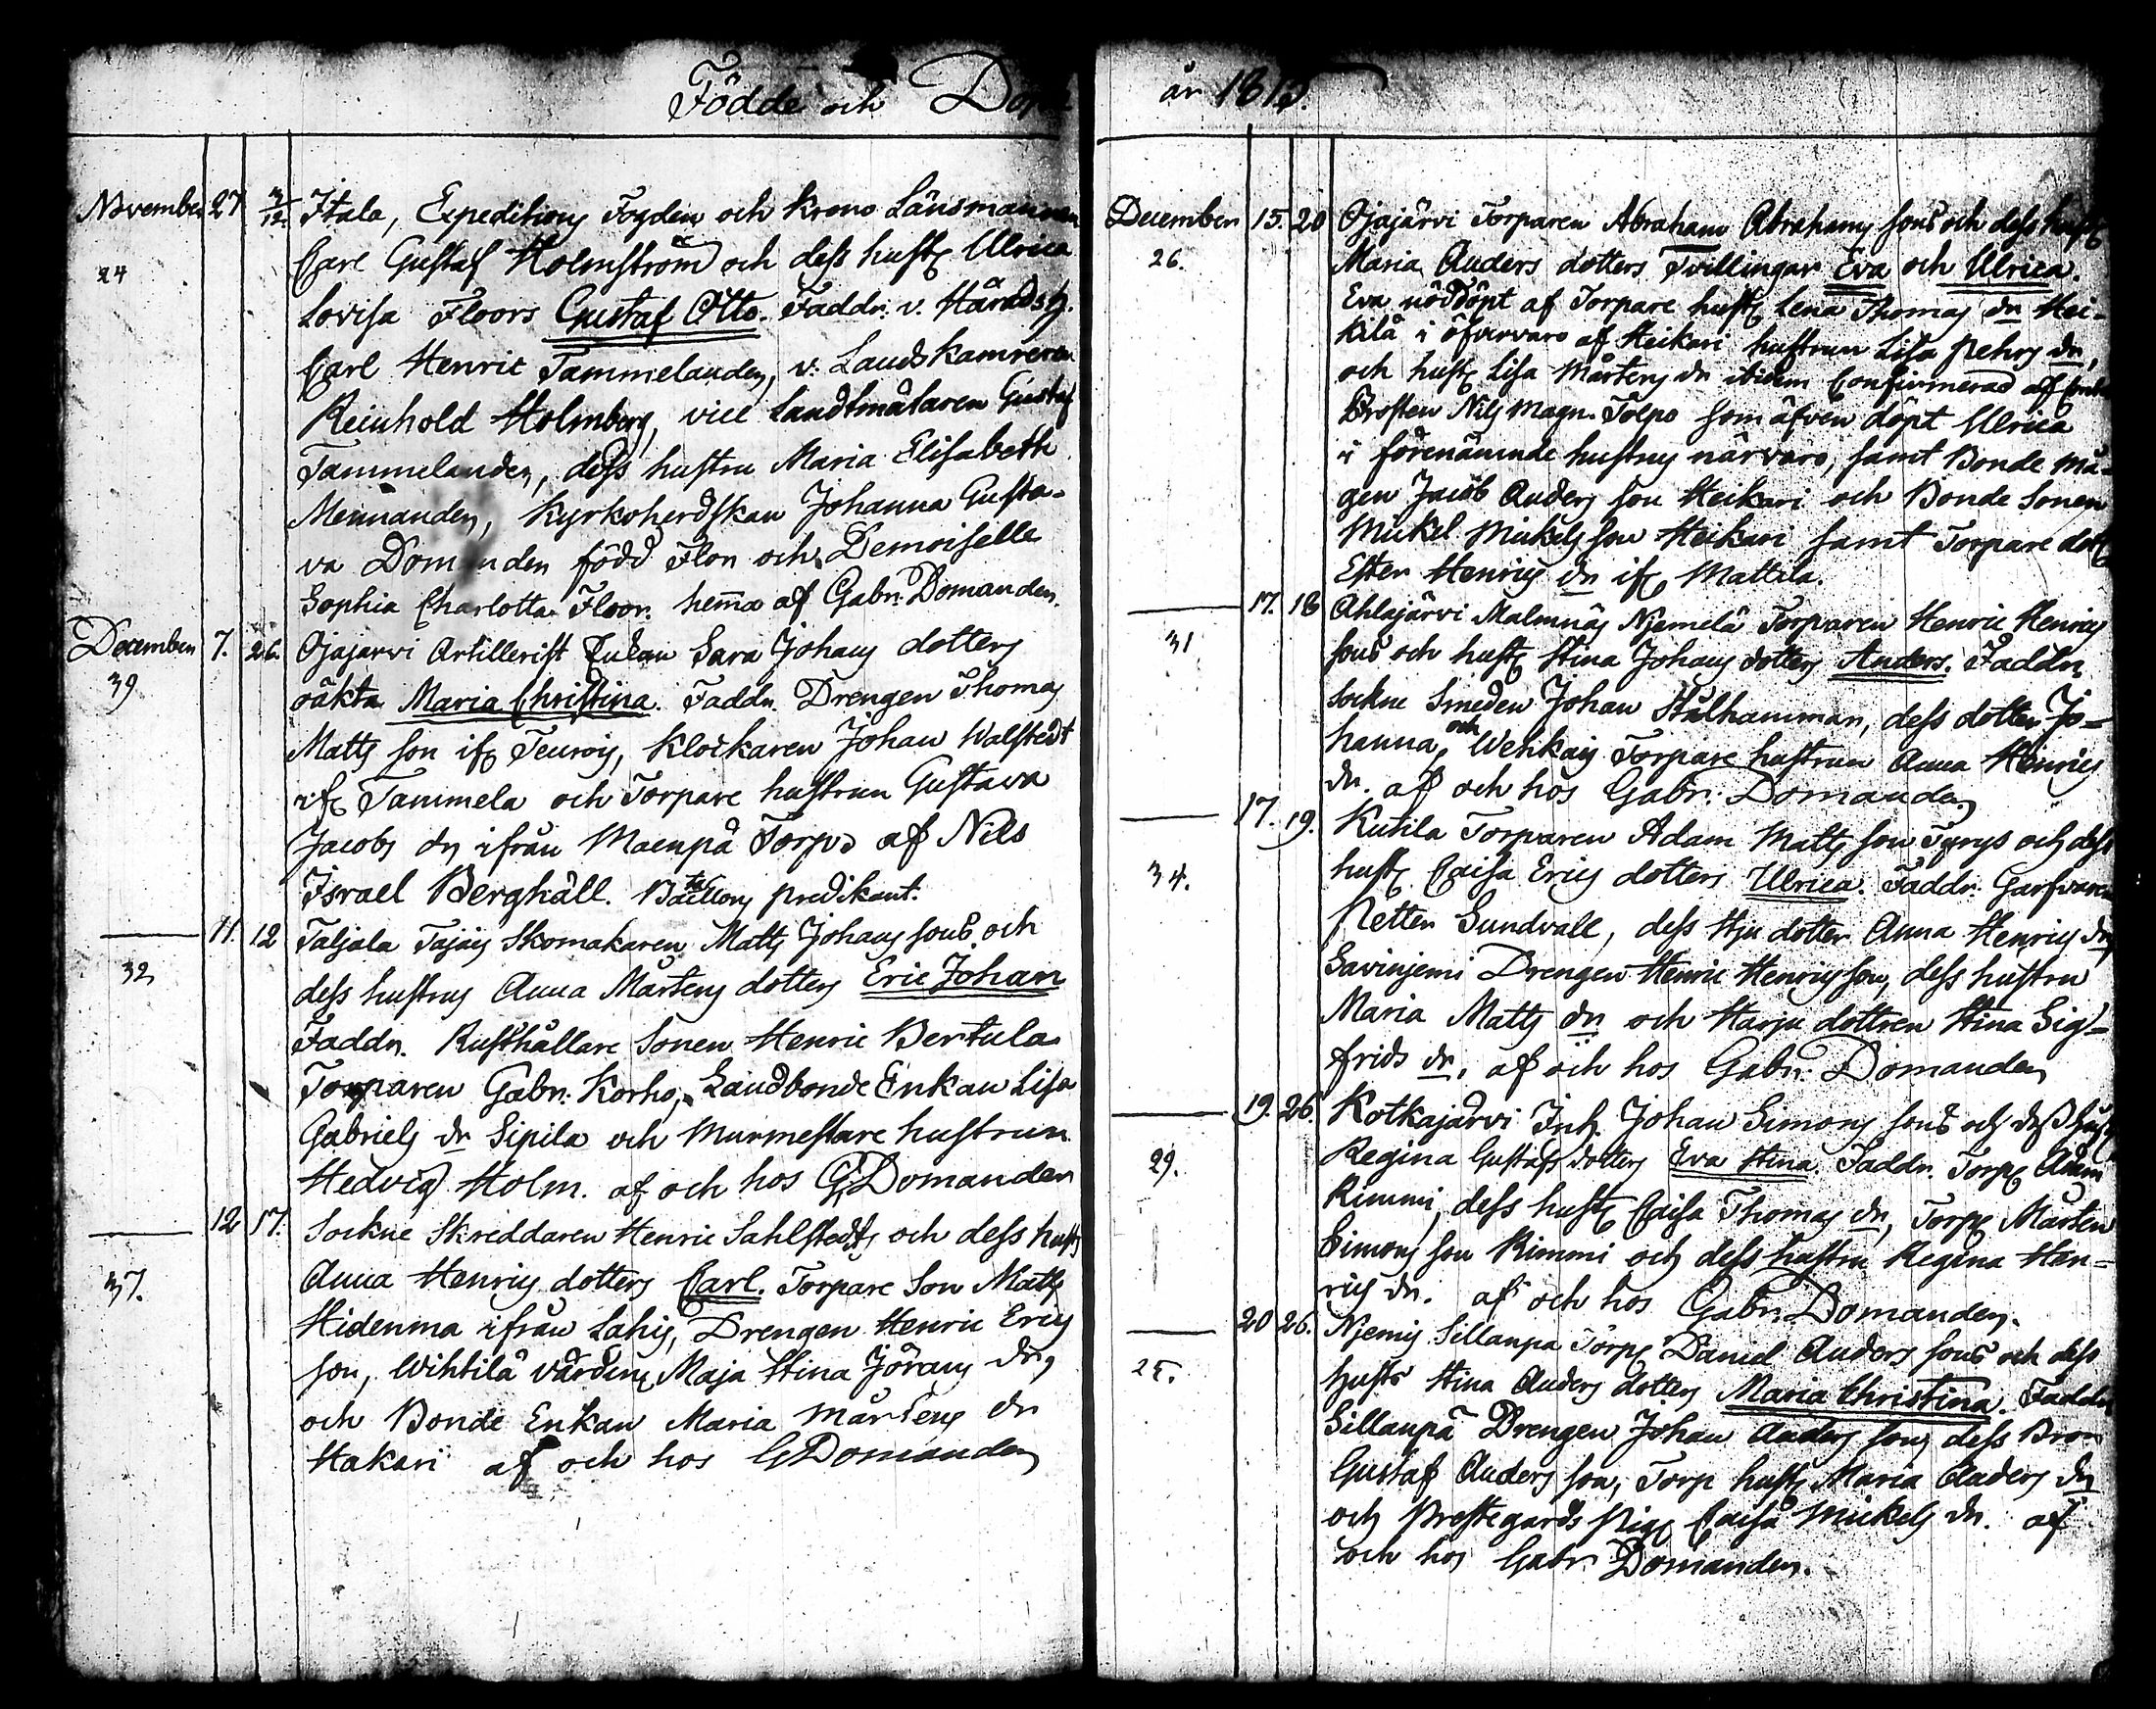 Födde och
November 27 3/12 Itala, Expeditions Fogden och Krono Länsmannen
Carl Gustaf Holmström och dess hust. Ulrica
24
Lovisa Floors Gustaf Otto. Faddr. v. Häradsh.
Carl Henric Tammelander, v. Landskamreren
Reinhold Holmberg, vice Landtmätaren Gustaf
Tammelander, dess hustru Maria Elisabeth
Mennander, Kyrkoherdskan Johanna Gusta-
va Domander född Flor och Demoiselle
Sophia Charlotta Floor. hema af Gabr. Domander.
December 7. 26. Ojajärvi Artillerist Enkan Sara Johans dotters
39
oäkta Maria Christina. Faddr. Drengen Thomas
Matts son ifr. Teurois, Klockaren Johan Walstedt
ifr. Tammela och Torpare hustrun Gustava
Jacobs dr ifrån Maenpä Torp af Nils
Israel Berghäll. Battlions predikant.
11. 12 Taljala Tajais Skomakaren Matts Johans sons och
32
dess hustrus Anna Mårtens dotters Eric Johan
Faddr. Rusthållare Sonen Henric Bertula
Torparen Gabr. Korho, Landbonde Enkan Lisa
Gabriels dr Sipilä och Murmestare hustrun
Hedvig Holm. af och hos G. Domander
12 17. Sockne Skreddaren Henric Sahlstedts och dess husts
37.
Anna Henrics dotters Carl. Torpare Son Matts
Hidenma ifrån Lahis, Drengen Henric Erics
son, Wihtilä Maja Stina Jörans dr,
och Bonde Enkan Maria Mårtens dr
Hakari af och hos G Domander
år
December 15. 20 Ojajärvi Torparen Abraham Abrahams sons och dess hust.
26.
Maria Anders dotters Tvillingar Eva och Ulrica.
Eva nöddöpt af Torpare hust. Lena Thomas dr Hei-
kilä i öfvervaro af Heikari hustrun Lisa Pehrs dr,
och hust. Lisa Mårtens dr ibidem Confirmerad af
Prosten Nils Magn. Tolpo som äfven döpt Ulrica
i förenämnde hustrus närvaro, samt Bonde Må-
gen Jacob Anders son Heikari och Bonde Sonen
Mickel Mickels son Heikari samt Torpare dott.
Ester Henrics dr ifr. Mattila.
17. 18 Ahlajärvi Malmnäs Njemelä Torparen Henric Henrics
31
sons och hust. Stina Johans dotters Anders. Faddr.
Sockne Smeden Johan Stålhammar, dess dotter Jo-
hanna, och Wehkais Torpare hustrun Anna Henrics
dr. af och hos Gabr. Domander
17. 19. Kutila Torparen Adam Matts son och dess
34.
hust. Caisa Erics dotters Ulrica. Faddr. Garfvaren
Petter Sundvall, dess Styf dotter Anna Henrics dr,
Savinjemi Drengen Henric Henrics son, dess hustru
Maria Matts dr och Harju dottren Stina Sig-
frids dr. af och hos Gabr. Domander
19. 26. Kotkajärvi Inh. Johan Simons sons och dess hust.
29.
Regina Gustafs dotters Eva Stina. Faddr. Torp. Adam
Rimmi, dess hust. Caisa Thomas dr, Torp. Mårten
Simons son Rimmi och dess hustru Regina Hen-
rics dr. af och hos Gabr. Domander.
20 26. Njemis Sillanpä Torp. Daniel Anders sons och dess
25.
husts Stina Anders dotters Maria Christina. Faddr.
Sillanpä Drengen Johan Anders son, dess Bror
Gustaf Anders son, Torp hust. Maria Anders dr
och Prestegårds Pig. Caisa Mickels dr. af
och hos Gabr. Domander.